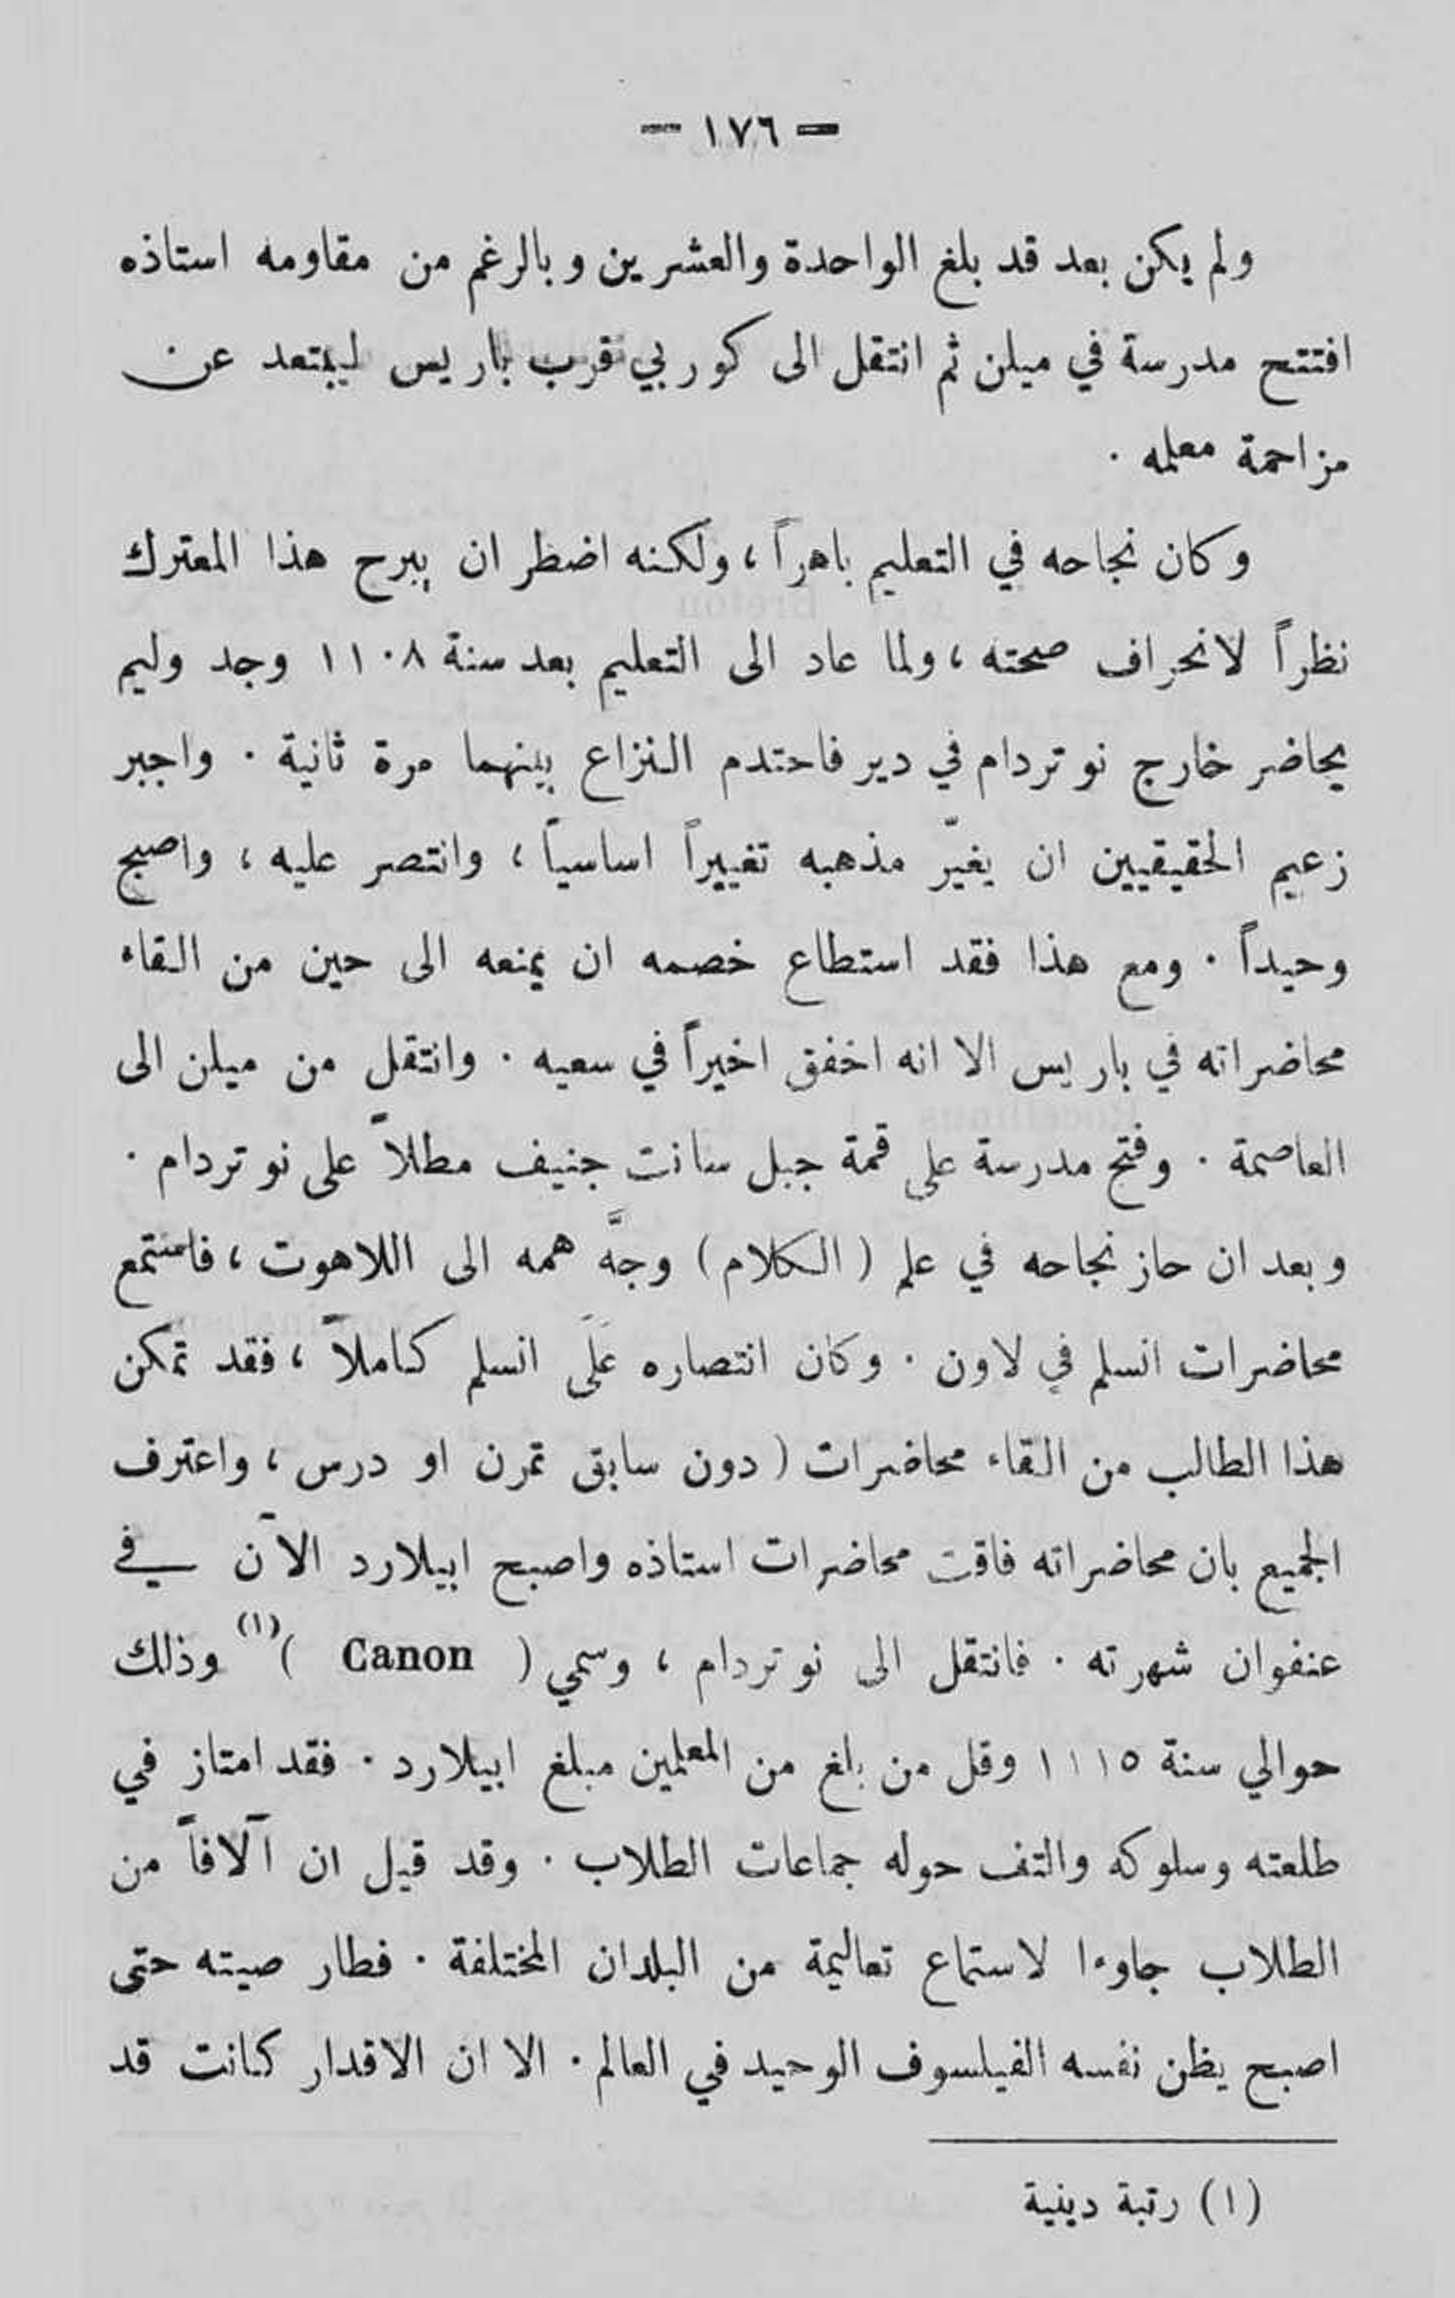 — ١٧٦ —
ولم يكن بعد قد بلغ الواحدة والعشرين وبالرغم من مقاومه استاذه
افتتح مدرسة في ميلن ثم انتقل الى كوربي قرب باريس ليبتعد عن
مزاحمة معلمه .
وكان نجاحه في التعليم باهراً ، ولكنه اضطر ان يبرح هذا المعترك
نظراً لانحراف صحته ، ولما عاد الى التعليم بعد سنة ١١٠٨ وجد وليم
يحاضر خارج نوتردام في دير فاحتدم النزاع بينهما مرة ثانية . واجبر
زعيم الحقيقيين ان يغيّر مذهبه تغييراً اساسياً ، وانتصر عليه ، واصبح
وحيداً . ومع هذا فقد استطاع خصمه ان يمنعه الى حين من القاء
محاضراته في باريس الا انه اخفق اخيراً في سعيه . وانتقل من ميلن الى
العاصمة . وفتح مدرسة على قمة جبل سانت جنيف مطلاً على نوتردام .
وبعد ان حاز نجاحه في علم ( الكلام ) وجَّه همه الى اللاهوت ، فاستمع
محاضرات انسلم في لاون . وكان انتصاره عَلَى انسلم كاملاً ، فقد تمكن
هذا الطالب من القاء محاضرات ( دون سابق تمرن او درس ، واعترف
الجميع بان محاضراته فاقت محاضرات استاذه واصبح ابيلارد الآن في
عنفوان شهرته . فانتقل الى نوتردام ، وسمي ( Canon ) (١) وذلك
حوالي سنة ١١١٥ وقل من بلغ من المعلمين مبلغ ابيلارد . فقد امتاز في
طلعته وسلوكه والتف حوله جماعات الطلاب . وقد قيل ان آلافاً من
الطلاب جاوءا لاستماع تعاليمة من البلدان المختلفة . فطار صيته حتى
اصبح يظن نفسه الفيلسوف الوحيد في العالم . الا ان الاقدار كانت قد
(١) رتبة دينية